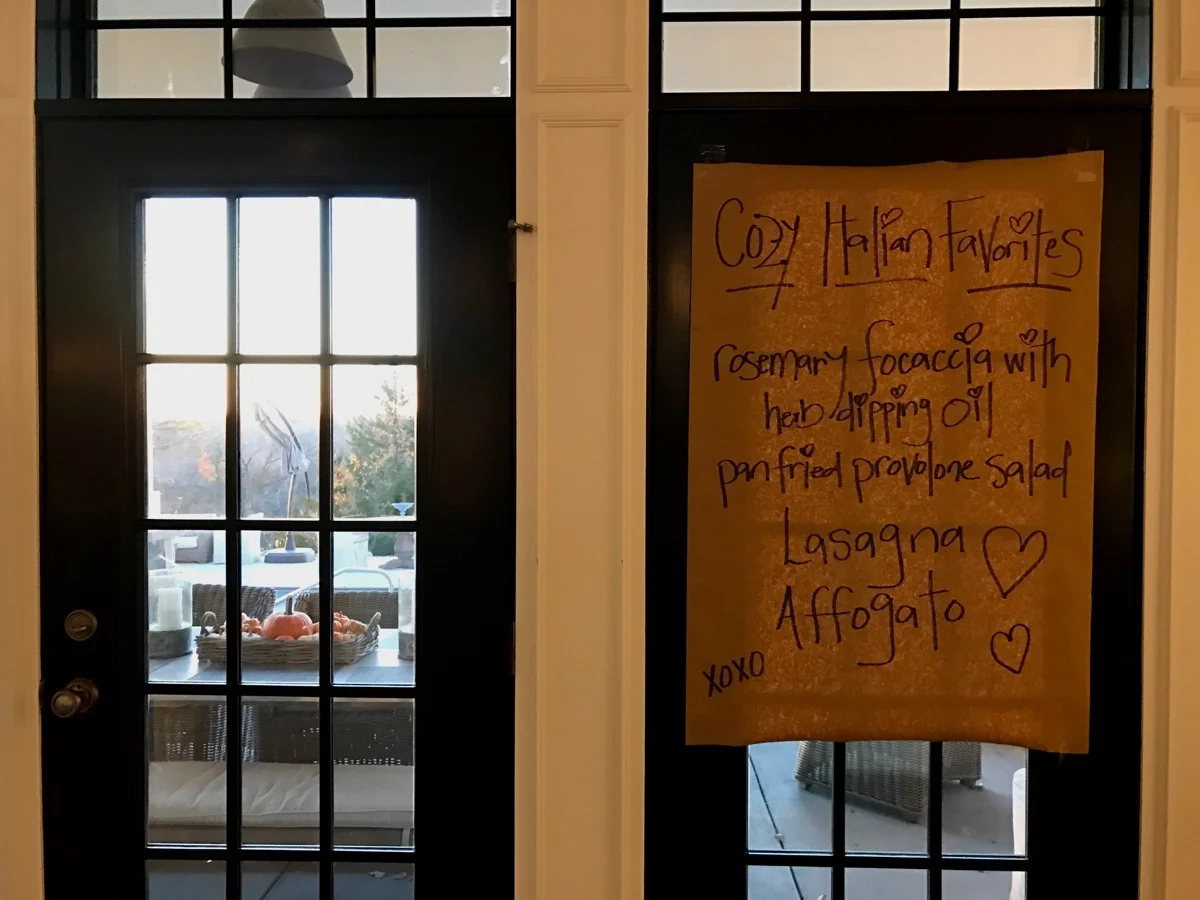 Cozy Italian Favorites
rosemary focaccia with
herb dipping oil
pan fried provolone salad
Lasagna
Affogato
xoxo